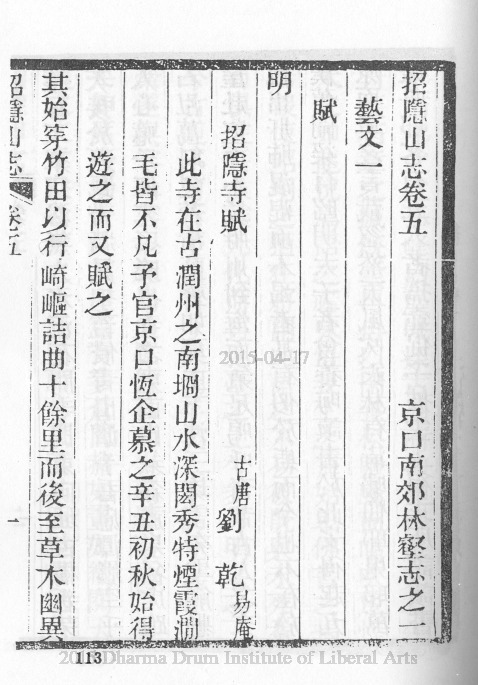 招隱山志卷五
京口南郊林壑志之一
藝文一
賦
明
招隱寺賦
古唐劉乾易庵
此寺在古潤州之南堈山水深閟秀特煙霞澗
毛皆不凡予官京口恆企慕之辛丑初秋始得
遊之而又賦之
其始穿竹田以行崎嶇詰曲十餘里而後至草木幽異
招隱山志
卷五
一
2015-04-17
113
Dharma Drum Institute of Liberal Arts